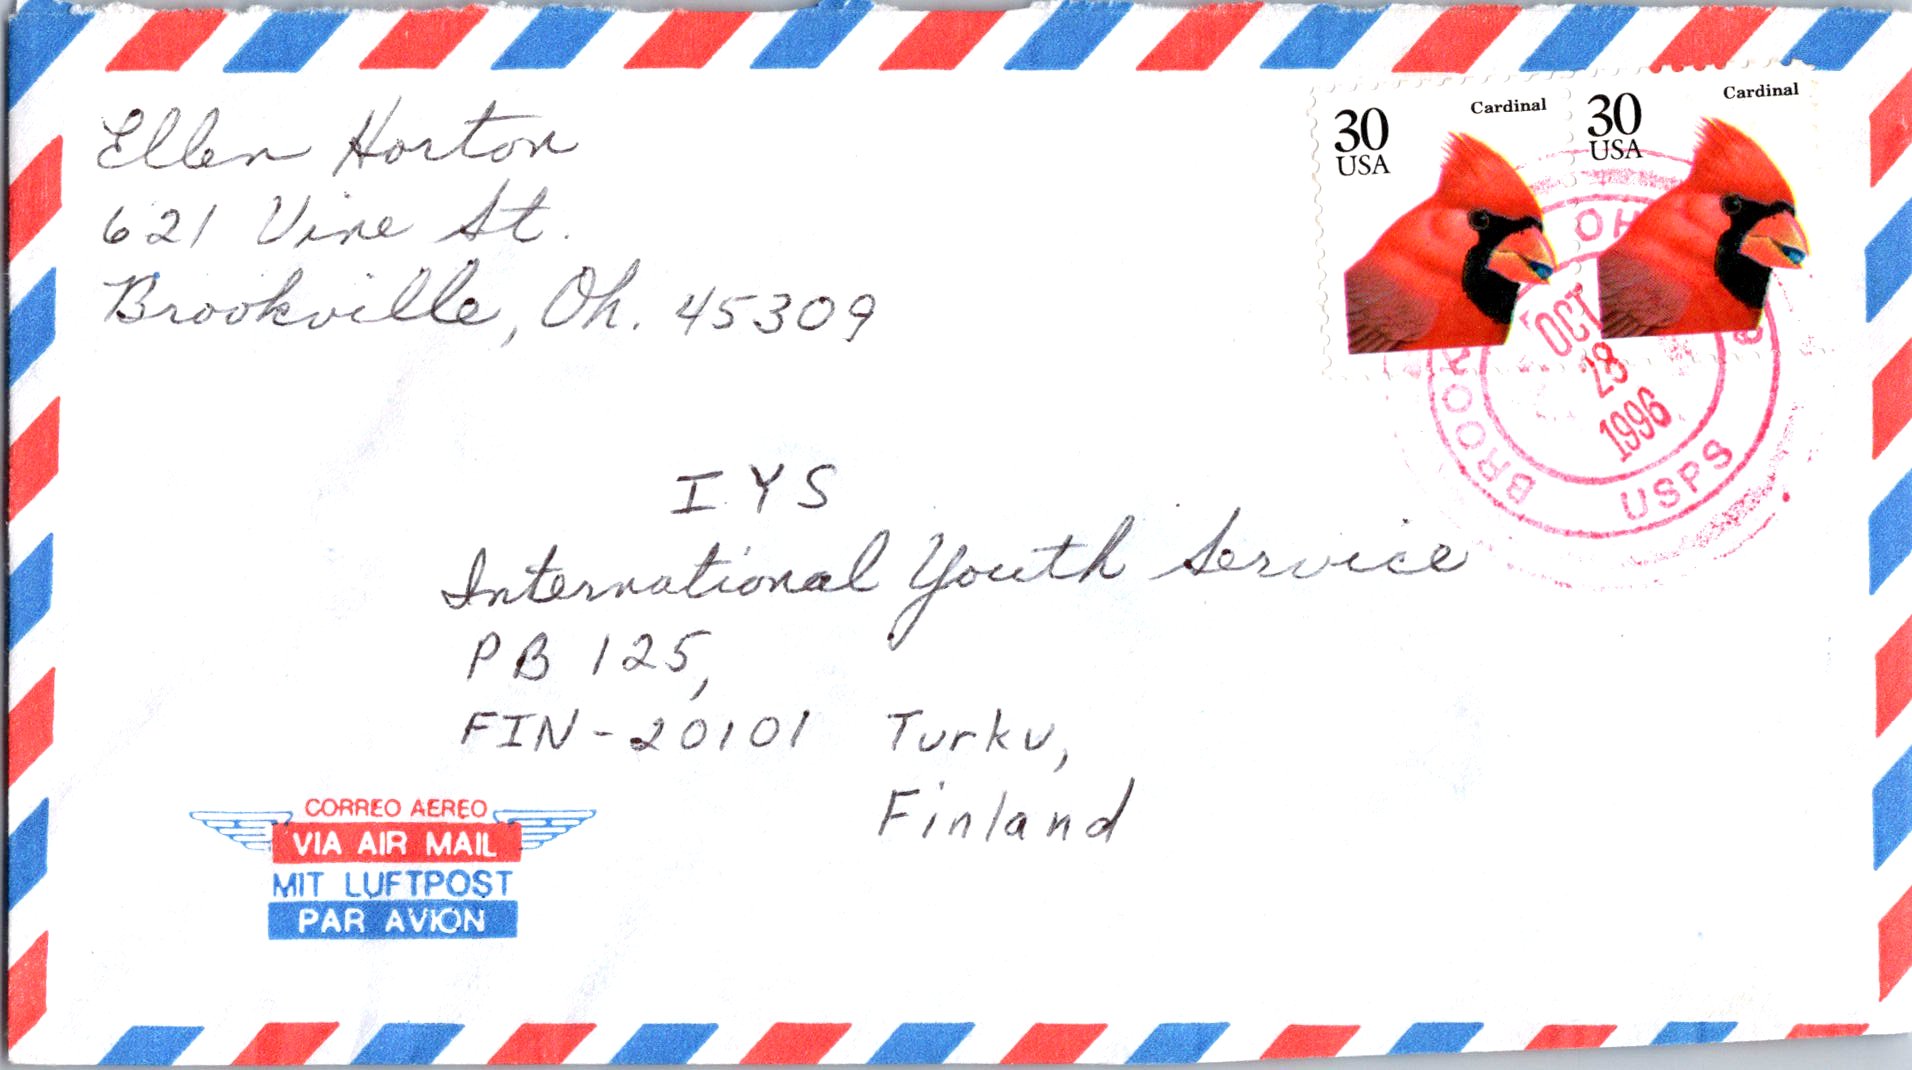 Ellen Horton
621 Vine St.
Brookville, Oh. 45309
30
USA
Cardinal
30
USA
Cardinal
OCT
28
1996
USPS
IYS
International Youth Service
PB 125,
FIN-20101 Turku,
Finland
CORREO AEREO
VIA AIR MAIL
MIT LUFTPOST
PAR AVION